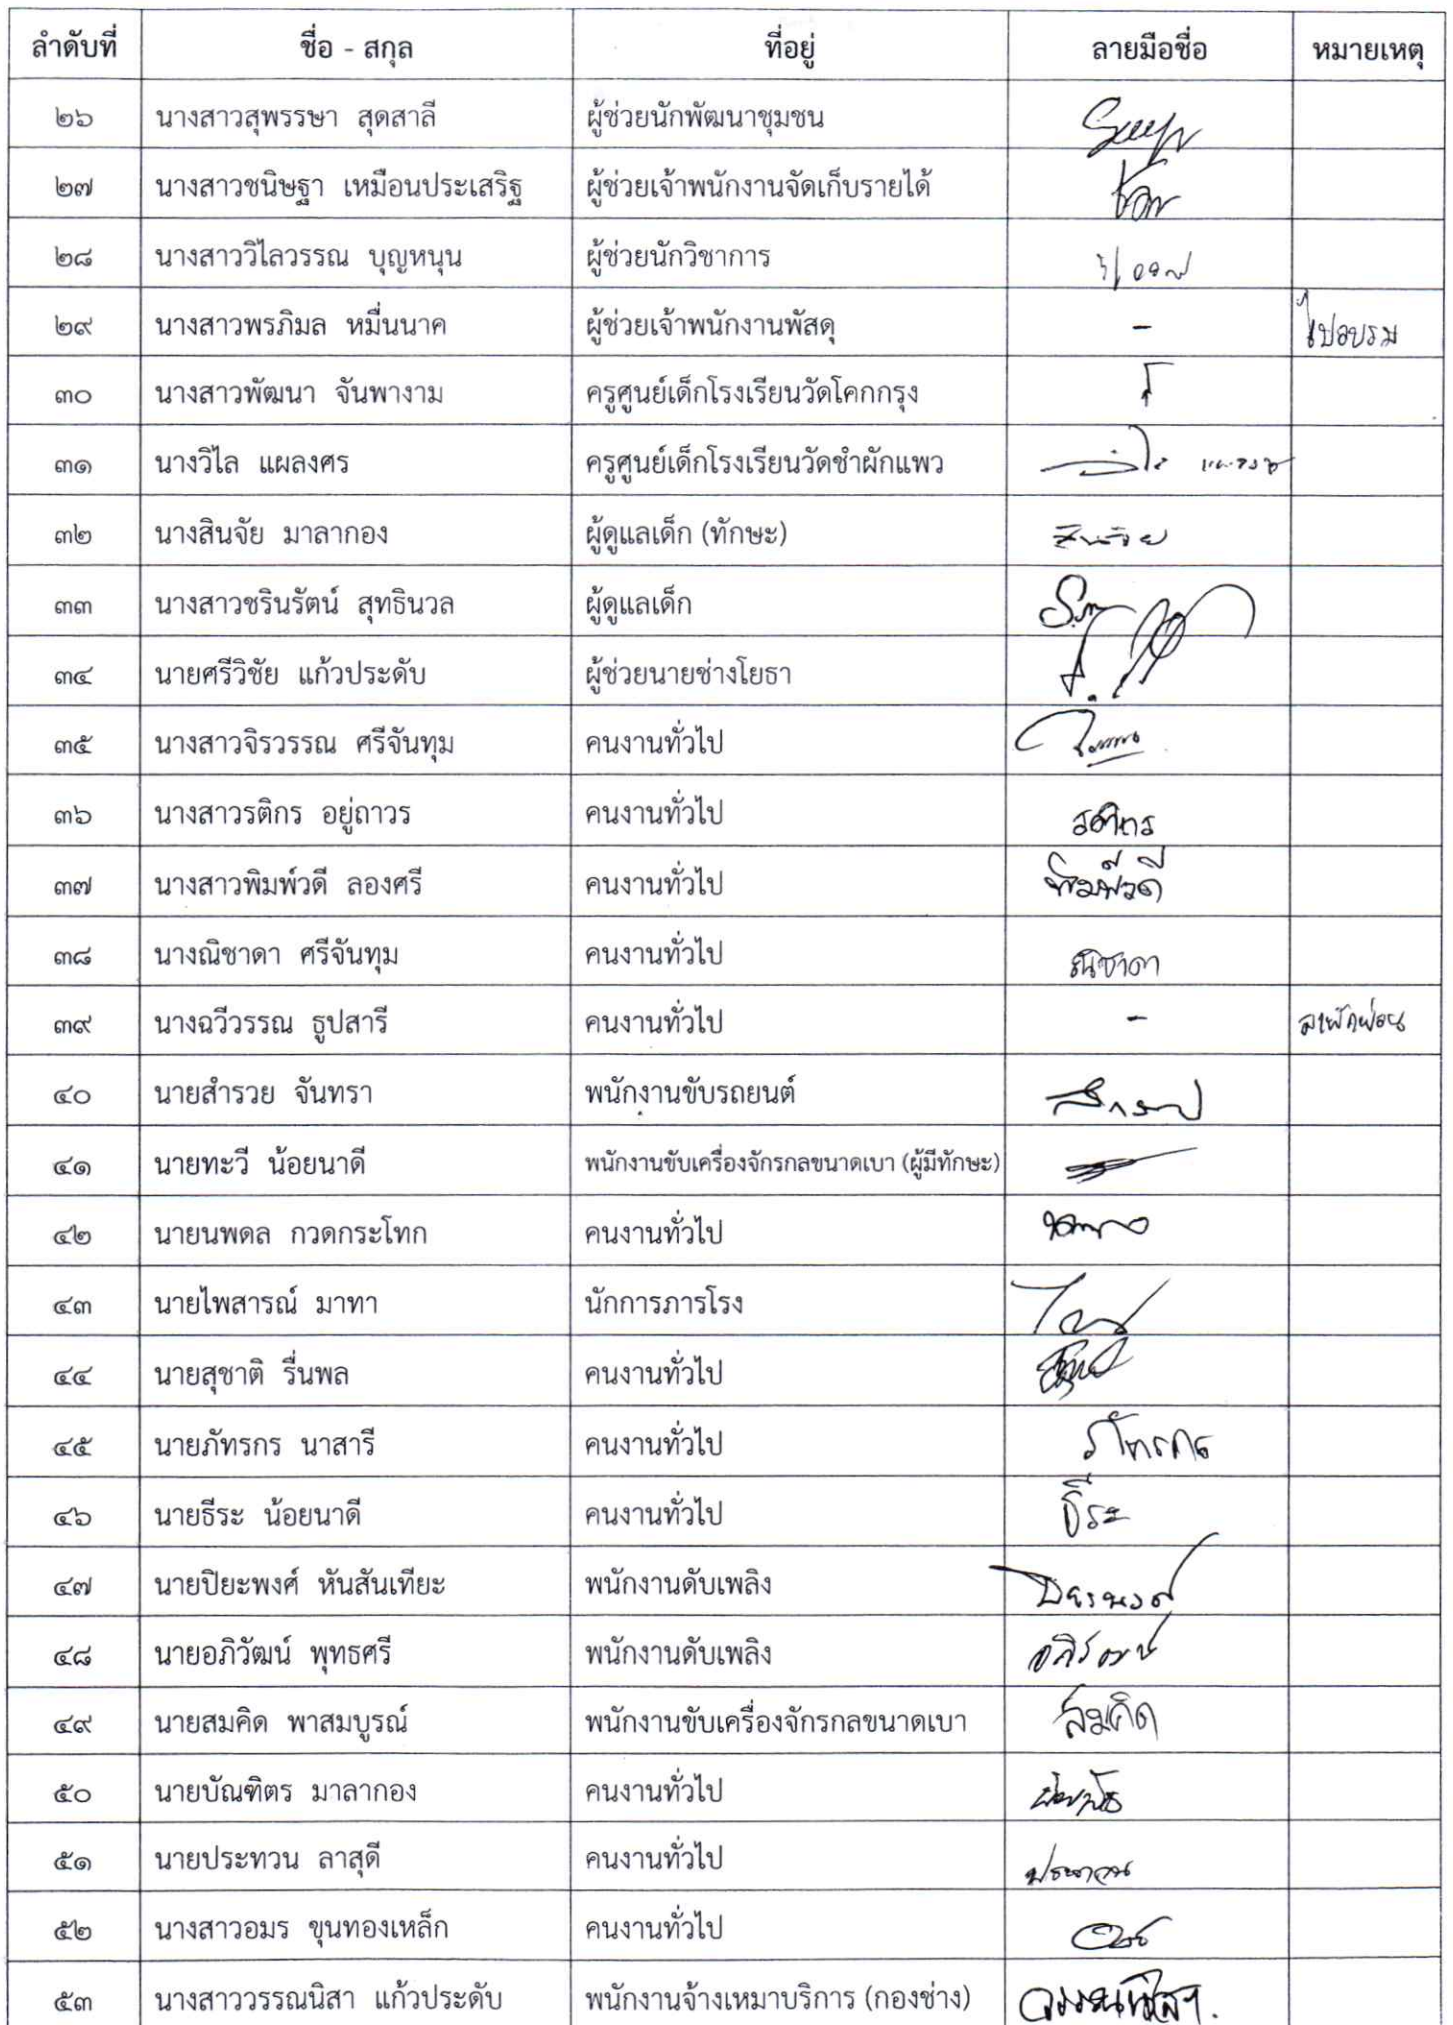 ลำดับที่ ชื่อ - สกุล ที่อยู่ ลายมือชื่อ หมายเหตุ
๒๖ นางสาวสุพรรษา สุดสาลี ผู้ช่วยนักพัฒนาชุมชน
๒๗ นางสาวชนิษฐา เหมือนประเสริฐ ผู้ช่วยเจ้าพนักงานจัดเก็บรายได้
๒๘ นางสาววิไลวรรณ บุญหนุน ผู้ช่วยนักวิชาการ
๒๙ นางสาวพรภิมล หมื่นนาค ผู้ช่วยเจ้าพนักงานพัสดุ - ไปอบรม
๓๐ นางสาวพัฒนา จันพางาม ครูศูนย์เด็กโรงเรียนวัดโคกกรุง
๓๑ นางวิไล แผลงศร ครูศูนย์เด็กโรงเรียนวัดซำผักแพว
๓๒ นางสินจัย มาลากอง ผู้ดูแลเด็ก (ทักษะ) สินจัย
๓๓ นางสาวชรินรัตน์ สุทธินวล ผู้ดูแลเด็ก
๓๔ นายศรีวิชัย แก้วประดับ ผู้ช่วยนายช่างโยธา
๓๕ นางสาวจิรวรรณ ศรีจันทุม คนงานทั่วไป
๓๖ นางสาวรติกร อยู่ถาวร คนงานทั่วไป รติกร
๓๗ นางสาวพิมพ์วดี ลองศรี คนงานทั่วไป พิมพ์วดี
๓๘ นางณิชาดา ศรีจันทุม คนงานทั่วไป ณิชาดา
๓๙ นางฉวีวรรณ ธูปสารี คนงานทั่วไป - ลาพักผ่อน
๔๐ นายสำรวย จันทรา พนักงานขับรถยนต์
๔๑ นายทะวี น้อยนาดี พนักงานขับเครื่องจักรกลขนาดเบา (ผู้มีทักษะ)
๔๒ นายนพดล กวดกระโทก คนงานทั่วไป
๔๓ นายไพสารณ์ มาทา นักการภารโรง
๔๔ นายสุชาติ รื่นพล คนงานทั่วไป
๔๕ นายภัทรกร นาสารี คนงานทั่วไป ภัทรกร
๔๖ นายธีระ น้อยนาดี คนงานทั่วไป ธีระ
๔๗ นายปิยะพงศ์ หันสันเทียะ พนักงานดับเพลิง
๔๘ นายอภิวัฒน์ พุทธศรี พนักงานดับเพลิง อภิวัฒน์
๔๙ นายสมคิด พาสมบูรณ์ พนักงานขับเครื่องจักรกลขนาดเบา สมคิด
๕๐ นายบัณฑิตร มาลากอง คนงานทั่วไป
๕๑ นายประทวน ลาสุดี คนงานทั่วไป ประทวน
๕๒ นางสาวอมร ขุนทองเหล็ก คนงานทั่วไป
๕๓ นางสาววรรณนิสา แก้วประดับ พนักงานจ้างเหมาบริการ (กองช่าง)